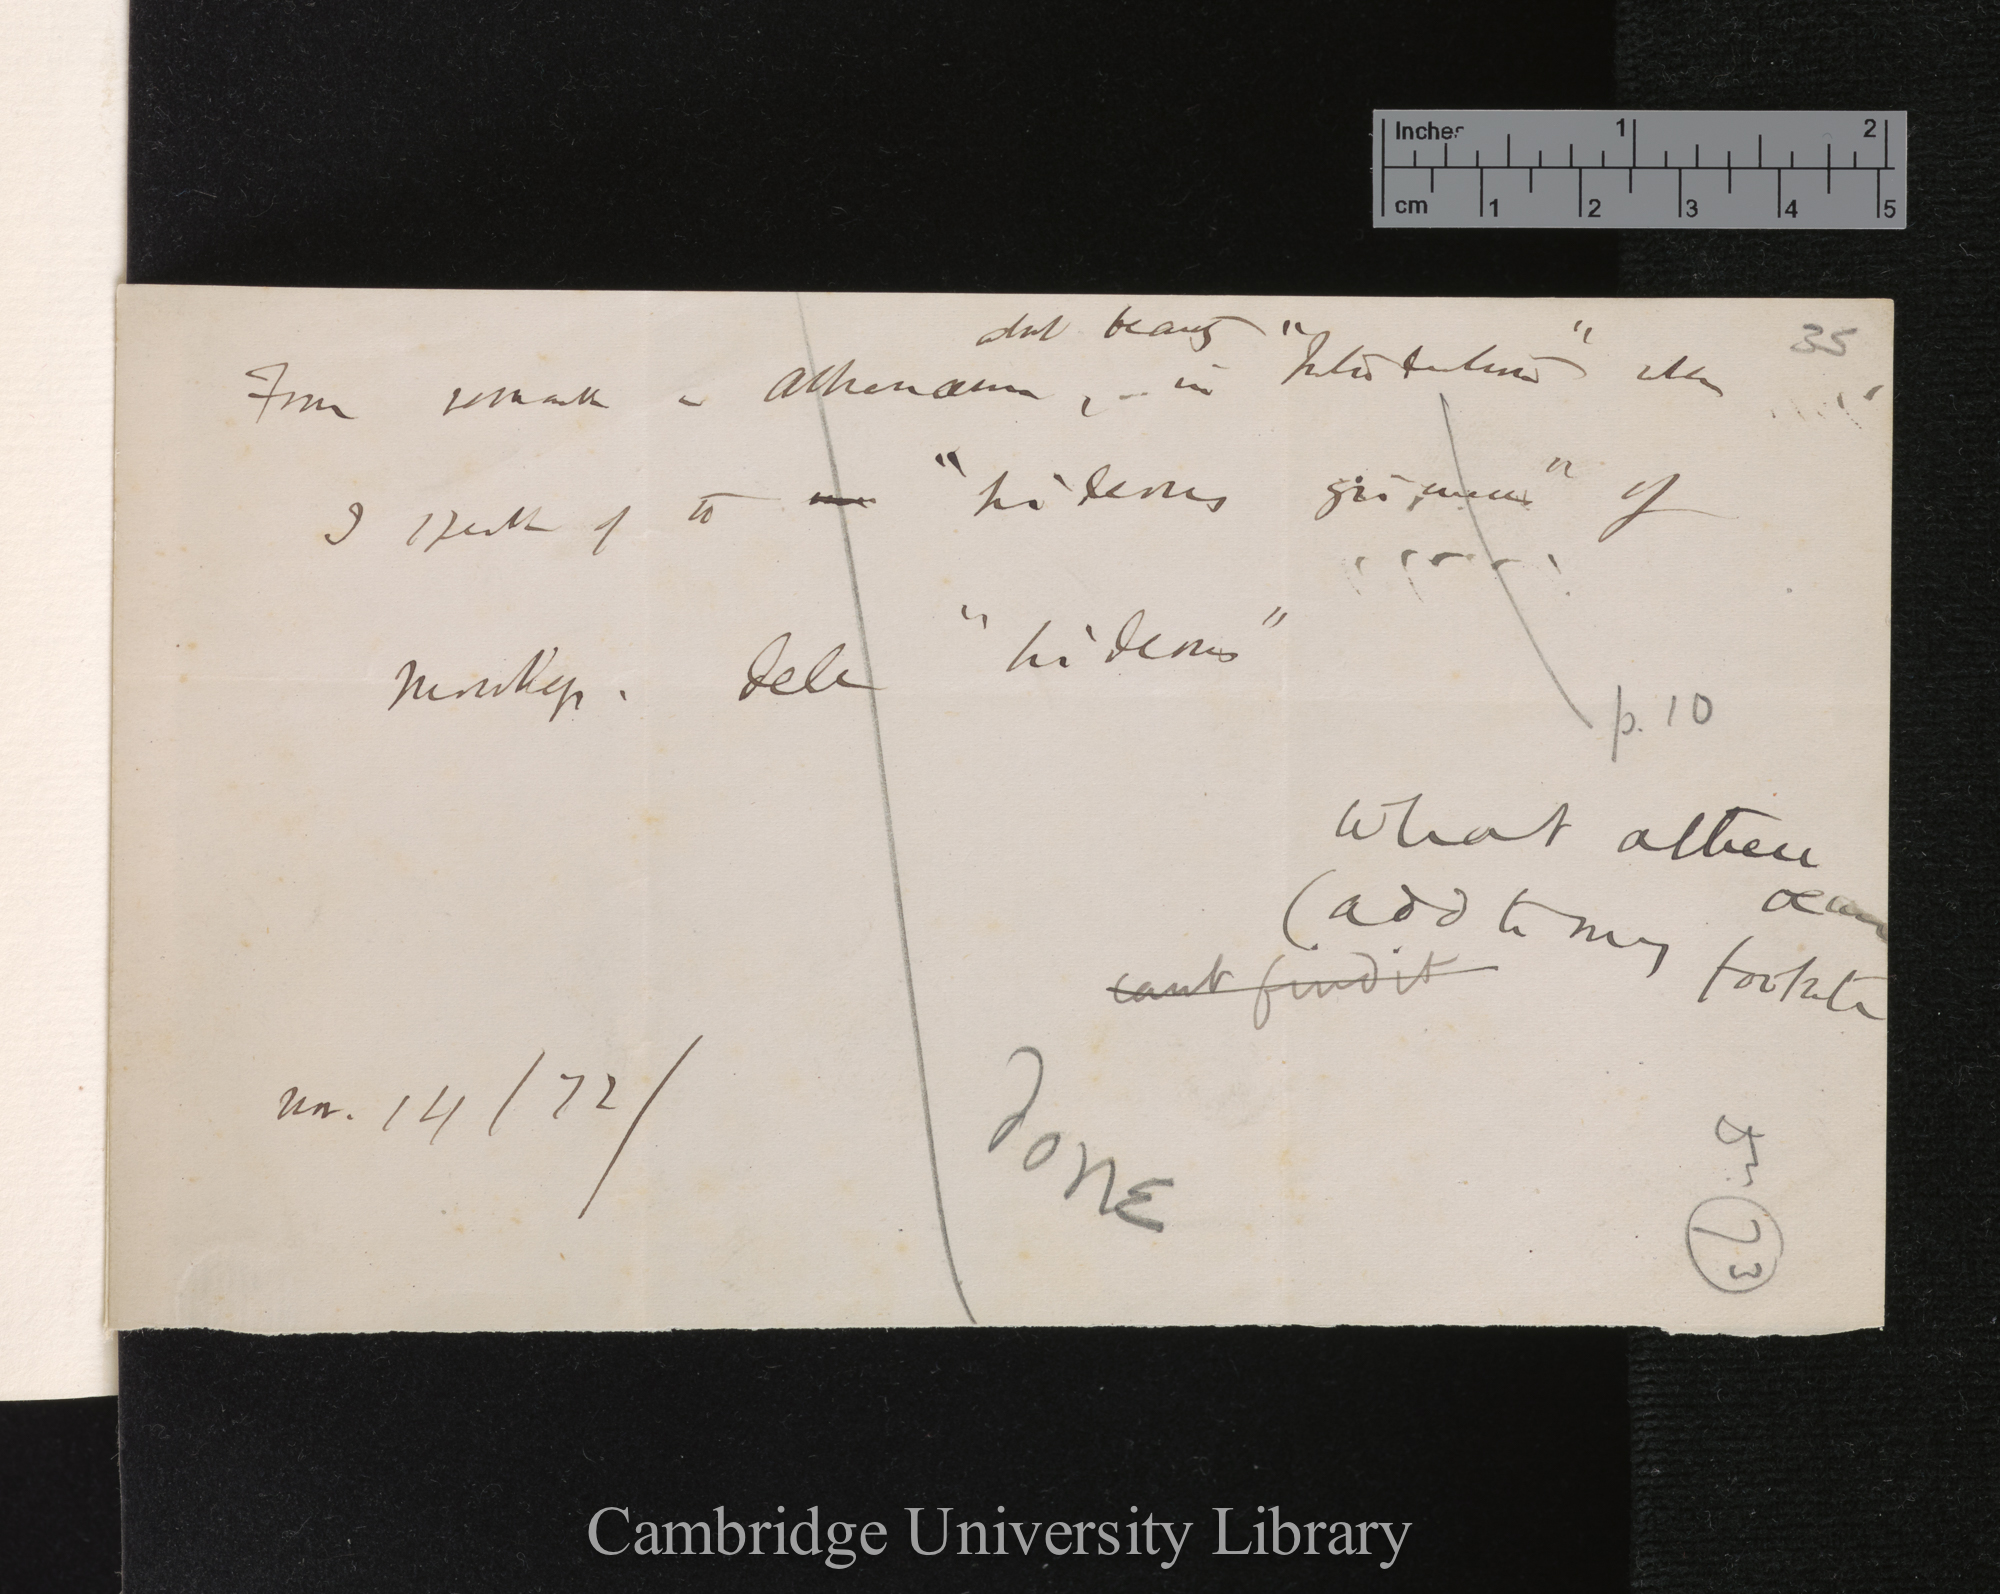 35
about beauty
From remark in Athenæum, – in "Introduction" when
I speak of to "hideous grimaces" of
monkeys. Dele "hideous"
p. 10
What Athen
æum
(add to my footnote
cant find it
Nov. 14/72/
DONE
73
Inches 1 2
cm 1 2 3 4 5
Cambridge University Library